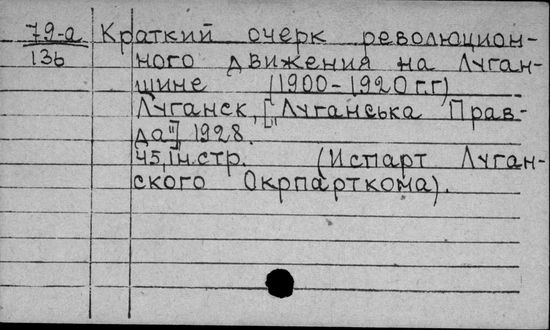 79-а Краткий очерк революцион-
136 ного движения на Луган-
щине (1900-1920 г.г)
Луганск, ["Луганська Прав-
да"], 1928.
45, Iн.стр. (Испарт Луган-
ского Окрпарткома).